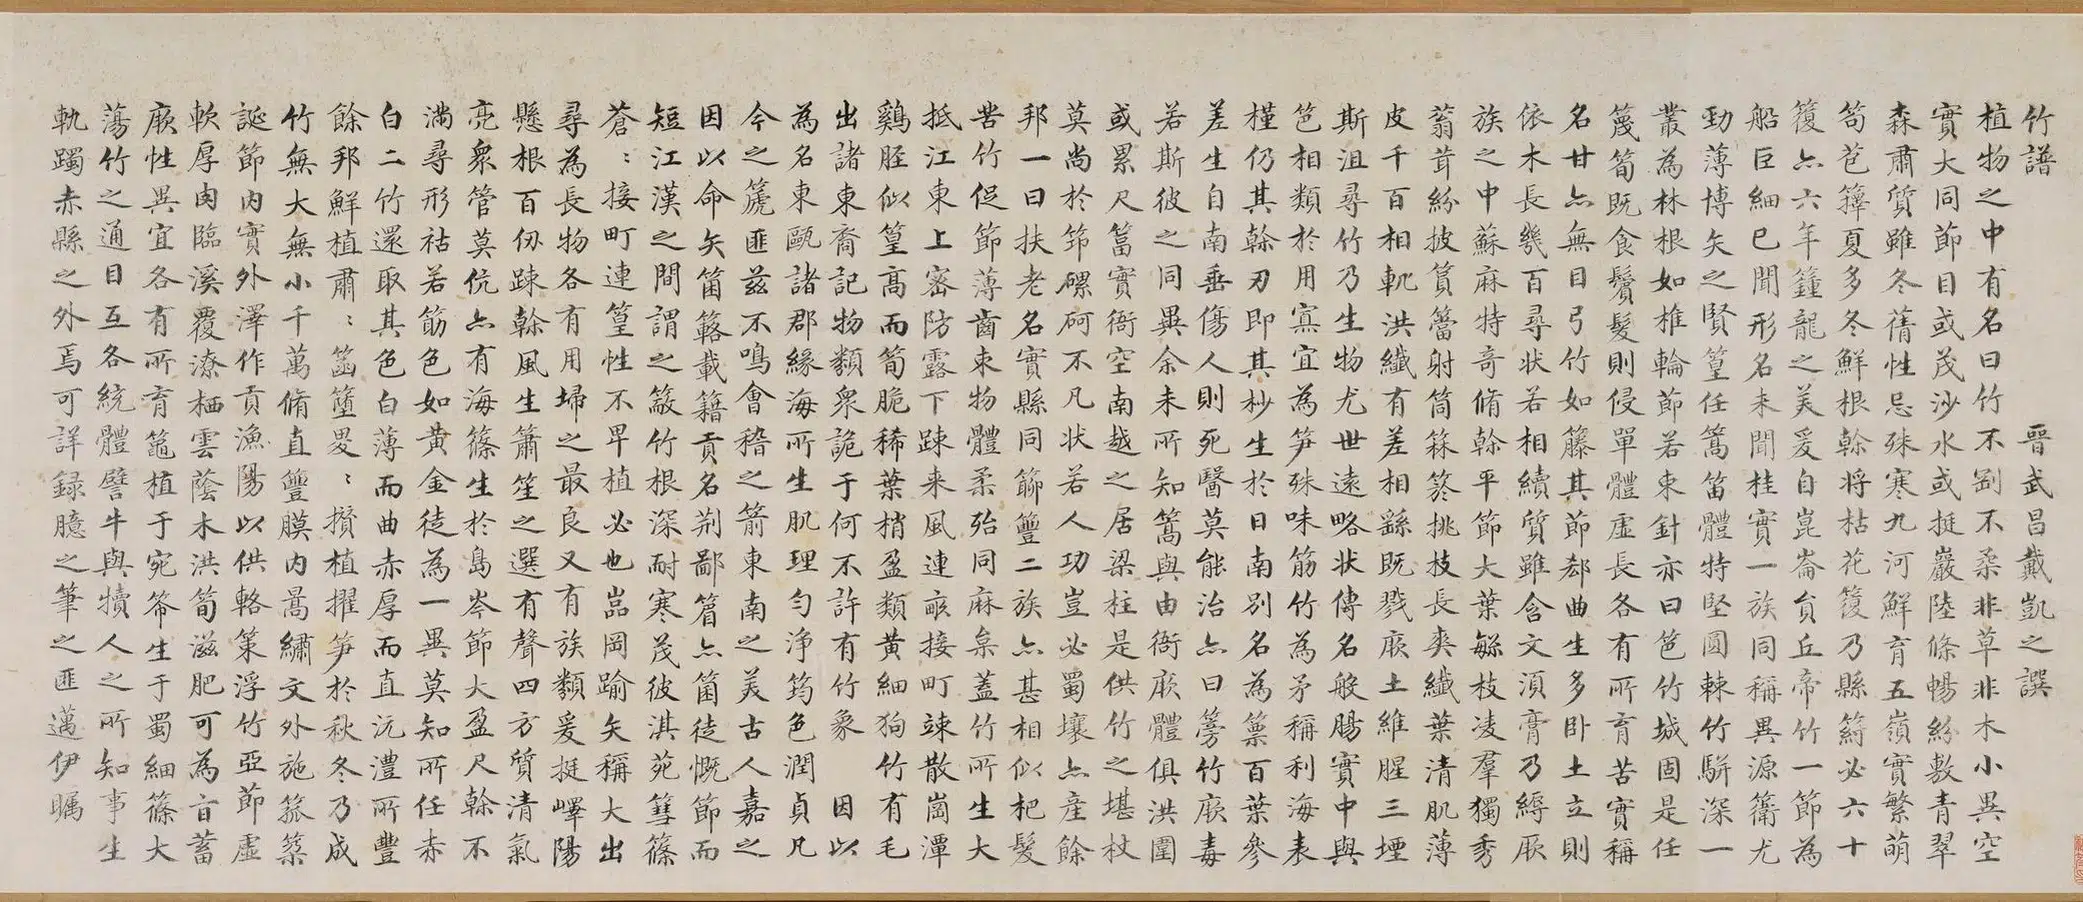 竹譜
晉武昌戴凱之譔
植物之中有名曰竹不剛不柔非草非木小異空
實大同節目或茂沙水或挺巖陸條暢紛敷青翠
森肅質雖冬蒨性忌殊寒九河鮮育五嶺實繁萌
筍苞籜夏多冬鮮根幹將枯花䈙乃縣䈽必六十
䈙亦六年鐘龍之美爰自崑崙員丘帝竹一節為
船巨細已聞形名未聞桂實一族同稱異源䉛尤
勁薄博矢之賢篁任篙笛體特堅圓棘竹駢深一
叢為林根如椎輪節若束針亦曰笆竹城固是任
篾筍既食鬢髮則侵單體虛長各有所育苦實稱
名甘亦無目弓竹如籐其節郄曲生多卧土立則
依木長幾百尋狀若相續質雖含文須膏乃縟厥
族之中蘇麻特奇脩幹平節大葉繁枝凌羣獨秀
蓊茸紛披篔簹射筒箖箊桃枝長爽纖葉清肌薄
皮千百相亂洪纖有差相繇既戮厥土維腥三堙
斯沮尋竹乃生物尤世遠略狀傳名般腸實中與
笆相類於用寡宜為笋殊味筋竹為矛稱利海表
槿仍其幹刃即其杪生於日南別名為篥百葉參
差生自南垂傷人則死醫莫能治亦曰篣竹厥毒
若斯彼之同異余未所知篙與由衙厥體俱洪圍
或累尺篙實衙空南越之居梁柱是供竹之堪杖
莫尚於筇磥砢不凡状若人功豈必蜀壤亦産餘
邦一曰扶老名實縣同䈏䉠二族亦甚相似杞髮
苦竹促節薄齒束物體柔殆同麻枲蓋竹所生大
抵江東上密防露下疎来風連畝接町竦散崗潭
鷄脛似篁高而筍脆稀葉梢盈類黄細狗竹有毛
出諸東裔記物類衆詭于何不許有竹象 因以
為名東甌諸郡緣海所生肌理匀净筠色潤貞凡
今之篪匪兹不鳴會稽之箭東南之美古人嘉之
因以命矢箘簵載籍貢名荆鄙篃亦箘徒概節而
短江漢之間謂之䉤竹根深耐寒茂彼淇苑篲篠
蒼〻接町連篁性不卑植必也嵓岡踰矢稱大出
尋為長物各有用埽之最良又有族類爰挺嶧陽
懸根百仭疎幹風生簫笙之選有聲四方質清氣
亮衆管莫伉亦有海篠生於島岑節大盈尺幹不
滿尋形祜若筋色如黄金徒為一異莫知所任赤
白二竹還取其色白薄而曲赤厚而直沅澧所豐
餘邦鮮植肅〻䈪䉌畟〻攢植擢笋於秋冬乃成
竹無大無小千萬脩直䉠膜内暠繡文外施箛䇭
誕節内實外澤作貢漁陽以供輅策浮竹亞節虛
軟厚肉臨溪覆潦栖雲蔭木洪筍滋肥可為旨蓄
厥性異宜各有所育䉋植于宛䈥生于蜀細篠大
蕩竹之通目互各統體譬牛與犢人之所知事生
軌躅赤縣之外焉可詳録臆之筆之匪邁伊矚